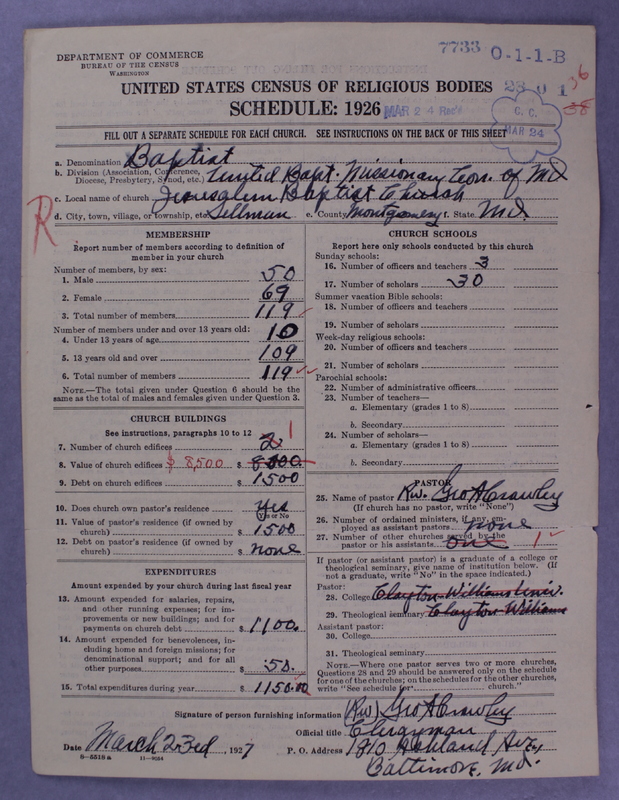 7733 O-1-1-B
DEPARTMENT OF COMMERCE
BUREAU OF THE CENSUS
WASHINGTON
UNITED STATES CENSUS OF RELIGIOUS BODIES
SCHEDULE: 1926
MAR 24 Rec'd
23 0 1
36
38
C. C.
MAR 24
FILL OUT A SEPARATE SCHEDULE FOR EACH CHURCH. SEE INSTRUCTIONS ON THE BACK OF THIS SHEET
a. Denomination Baptist
b. Division (Association, Conference, Diocese, Presbytery, Synod, etc.) United Bapt. Missionary Con. of Md
c. Local name of church Jerusalem Baptist Church
d. City, town, village, or township, etc. Sellman e. County Montgomery f. State Md.
R
MEMBERSHIP
Report number of members according to definition of
member in your church
Number of members, by sex:
1. Male 50
2. Female 69
3. Total number of members 119
Number of members under and over 13 years old:
4. Under 13 years of age 10
5. 13 years old and over 109
6. Total number of members 119
NOTE.—The total given under Question 6 should be the
same as the total of males and females given under Question 3.
CHURCH BUILDINGS
See instructions, paragraphs 10 to 12
7. Number of church edifices 2 1
8. Value of church edifices $ 8,500 $ 8500.
9. Debt on church edifices $ 1500
10. Does church own pastor's residence Yes
Yes or No
11. Value of pastor's residence (if owned by
church) $ 1500
12. Debt on pastor's residence (if owned by
church) $ none
EXPENDITURES
Amount expended by your church during last fiscal year
13. Amount expended for salaries, repairs,
and other running expenses; for im-
provements or new buildings; and for
payments on church debt $ 1100.
14. Amount expended for benevolences, in-
cluding home and foreign missions; for
denominational support; and for all
other purposes $ 50.
15. Total expenditures during year $ 1150.00
CHURCH SCHOOLS
Report here only schools conducted by this church
Sunday schools:
16. Number of officers and teachers 3
17. Number of scholars 30
Summer vacation Bible schools:
18. Number of officers and teachers
19. Number of scholars
Week-day religious schools:
20. Number of officers and teachers
21. Number of scholars
Parochial schools:
22. Number of administrative officers
23. Number of teachers—
a. Elementary (grades 1 to 8)
b. Secondary
24. Number of scholars—
a. Elementary (grades 1 to 8)
b. Secondary
PASTOR
25. Name of pastor Rev. Geo A Crawley
(If church has no pastor, write "None")
26. Number of ordained ministers, if any, em-
ployed as assistant pastors none
27. Number of other churches served by the
pastor or his assistants one 1
If pastor (or assistant pastor) is a graduate of a college or
theological seminary, give name of institution below. (If
not a graduate, write "No" in the space indicated.)
Pastor:
28. College Clayton-Williams Univ.
29. Theological seminary Clayton-Williams
Assistant pastor:
30. College
31. Theological seminary
NOTE.—Where one pastor serves two or more churches,
Questions 28 and 29 should be answered only on the schedule
for one of the churches; on the schedules for the other churches,
write "See schedule for church."
Signature of person furnishing information (Rev) Geo A Crawley
Official title Clergyman
Date March 23rd, 1927 P. O. Address 1810 Ashland Ave,
Baltimore, Md.
8—5518 a